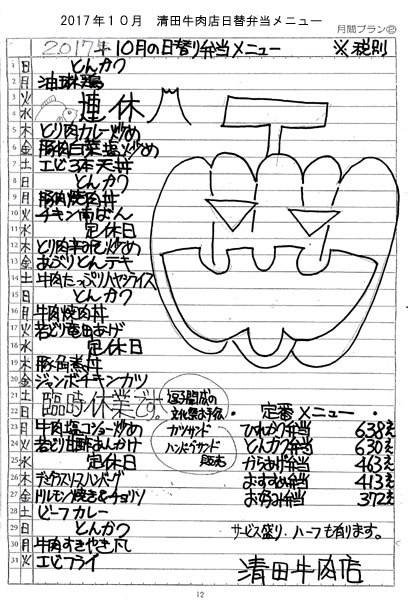 2017年10月 清田牛肉店日替弁当メニュー
月間プラン②
2017年10月の日替り弁当メニュー ※税別
1 日 とんかつ
2 月 油琳鶏
3 火 連休
4 水
5 木 とり肉カレー炒め
6 金 豚肉白菜塩炒め
7 土 エビ3本天丼
8 日 とんかつ
9 月 豚肉焼肉丼
10 火 チキン南ばん
11 水 定休日
12 木 とり肉辛みそ炒め
13 金 あぶりとんテキ
14 土 牛肉たっぷりハヤシライス
15 日 とんカツ
16 月 牛肉焼肉丼
17 火 若どり竜田あげ
18 水 定休日
19 木 豚角煮丼
20 金 ジャンボチキンカツ
21 土 臨時休業です。
22 日
逗子開成の
文化祭お手伝
カツサンド
ハンバーグサンド
販売
23 月 牛肉塩コショー炒め
24 火 若どり甘酢あんかけ
25 水 定休日
26 木 デミグラスソースハンバーグ
27 金 トルモン焼き&チョリソ
28 土 ビーフカレー
29 日 とんカツ
30 月 牛肉すきやき丼
31 火 エビフライ
・定番メニュー・
ひれかつ弁当 638え
とんかつ弁当 630え
からあげ弁当 463え
おすすめ弁当 413え
お好み弁当 372え
サービス盛り、ハーフも有ります。
清田牛肉店
12